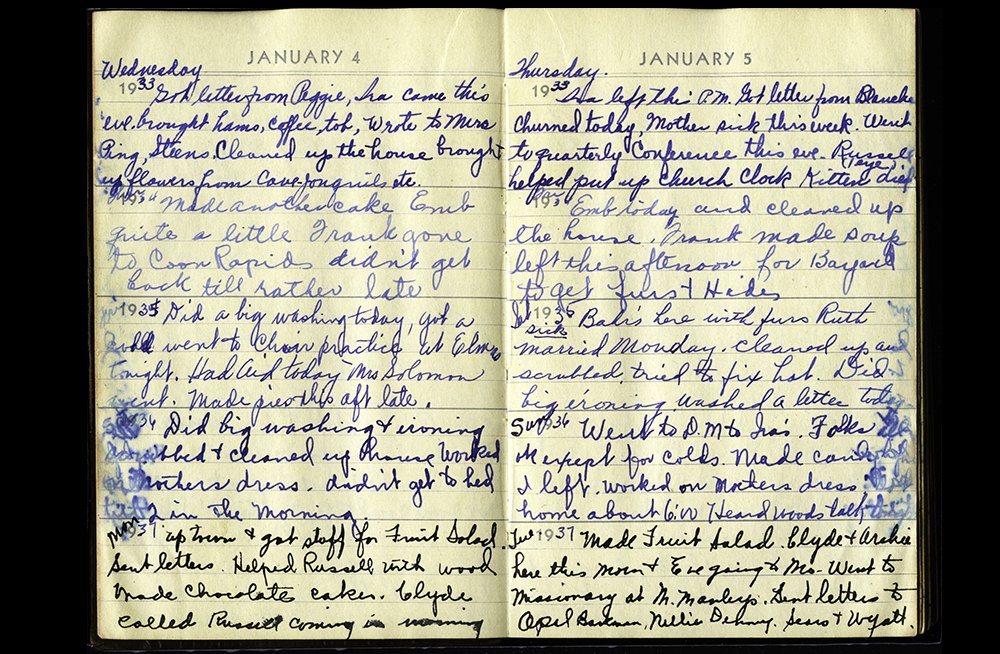 JANUARY 4
Wednesday
1933 Got letter from Peggie, Ira came this
eve. brought hams, coffee, Wrote to Mrs
Ping, Steens. Cleaned up the house brought
up flowers from Cave-jonquils etc.
Made another cake Emb
quite a little Frank gone
to Coon Rapids didn't get
back till rather late
1935 Did a big washing today, got a
went to Choir practice at Elms
tonight. Had Aid today Mrs Solomon
went. Made pies this aft late.
Did big washing & ironing
& cleaned up house Worked
Mothers dress. didn't get to bed
2 in the morning.
Mon 1937 up town & got stuff for Fruit Salad.
Sent letters. Helped Russell with wood
Made chocolate cakes. Clyde
called Russell coming in morning
JANUARY 5
Thursday.
1933 Ira left this P.M. Got letter from Blanche
Churned today, Mother sick this week. Went
to quarterly Conference this eve. Russell
helped put up Church Clock Kitten died
eve
Emb today and cleaned up
the house. Frank made soup
left this afternoon for Bayard
to get Furs & Hides
Bab's here with furs Ruth
sick
married Monday. cleaned up and
scrubbed, tried to fix hat. Did
big ironing washed a letter today
Sun 1936 Went to D.M to Ira's. Folks
ok except for colds. Made candy
I left. worked on Mothers dress
home about 6:00 Heard woods talk
Tue 1937 Made Fruit Salad. Clyde & Archie
here this Morn & Eve going to Mo. Went to
Missionary at M. Manleys. Sent letters to
Opel, Nellie, Sears & Wyatt.